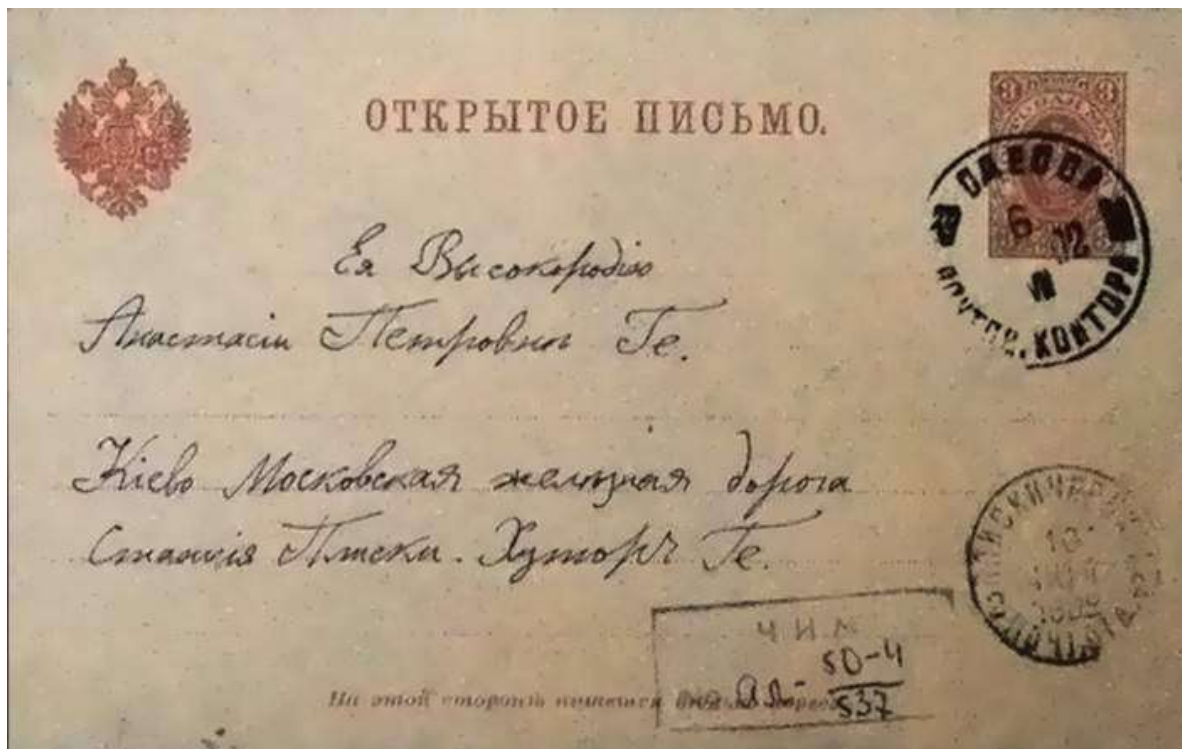 ОТКРЫТОЕ ПИСЬМО.
3 3
ОДЕССА
6 02
VII
ПОЧТОВ. КОНТОРА
Ея Высокородію
Анастасіи Петровнѣ Ге.
Кіево Московская желѣзная дорога
Станція Плиски. Хуторъ Ге.
ПЛИСКИ ЧЕРН
10
ПОЧТ. ОТД.
Ч И М
АЛ- 50-4
537
На этой сторонѣ пишется